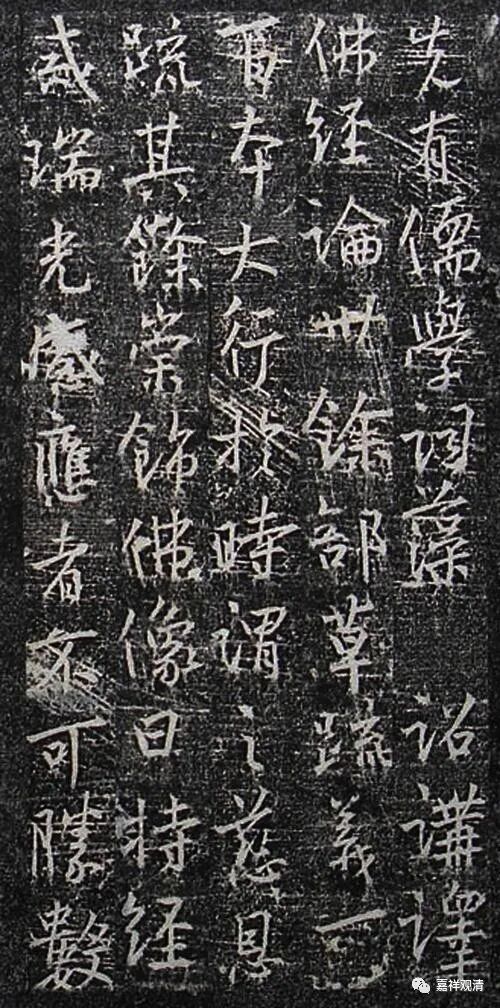 先有儒學詞藻 詔講譯
佛經論卅餘部草疏義一
百本大行於時謂之慈恩
疏其餘崇飾佛像日持經
戒瑞光感應者不可勝數
嘉祥观清